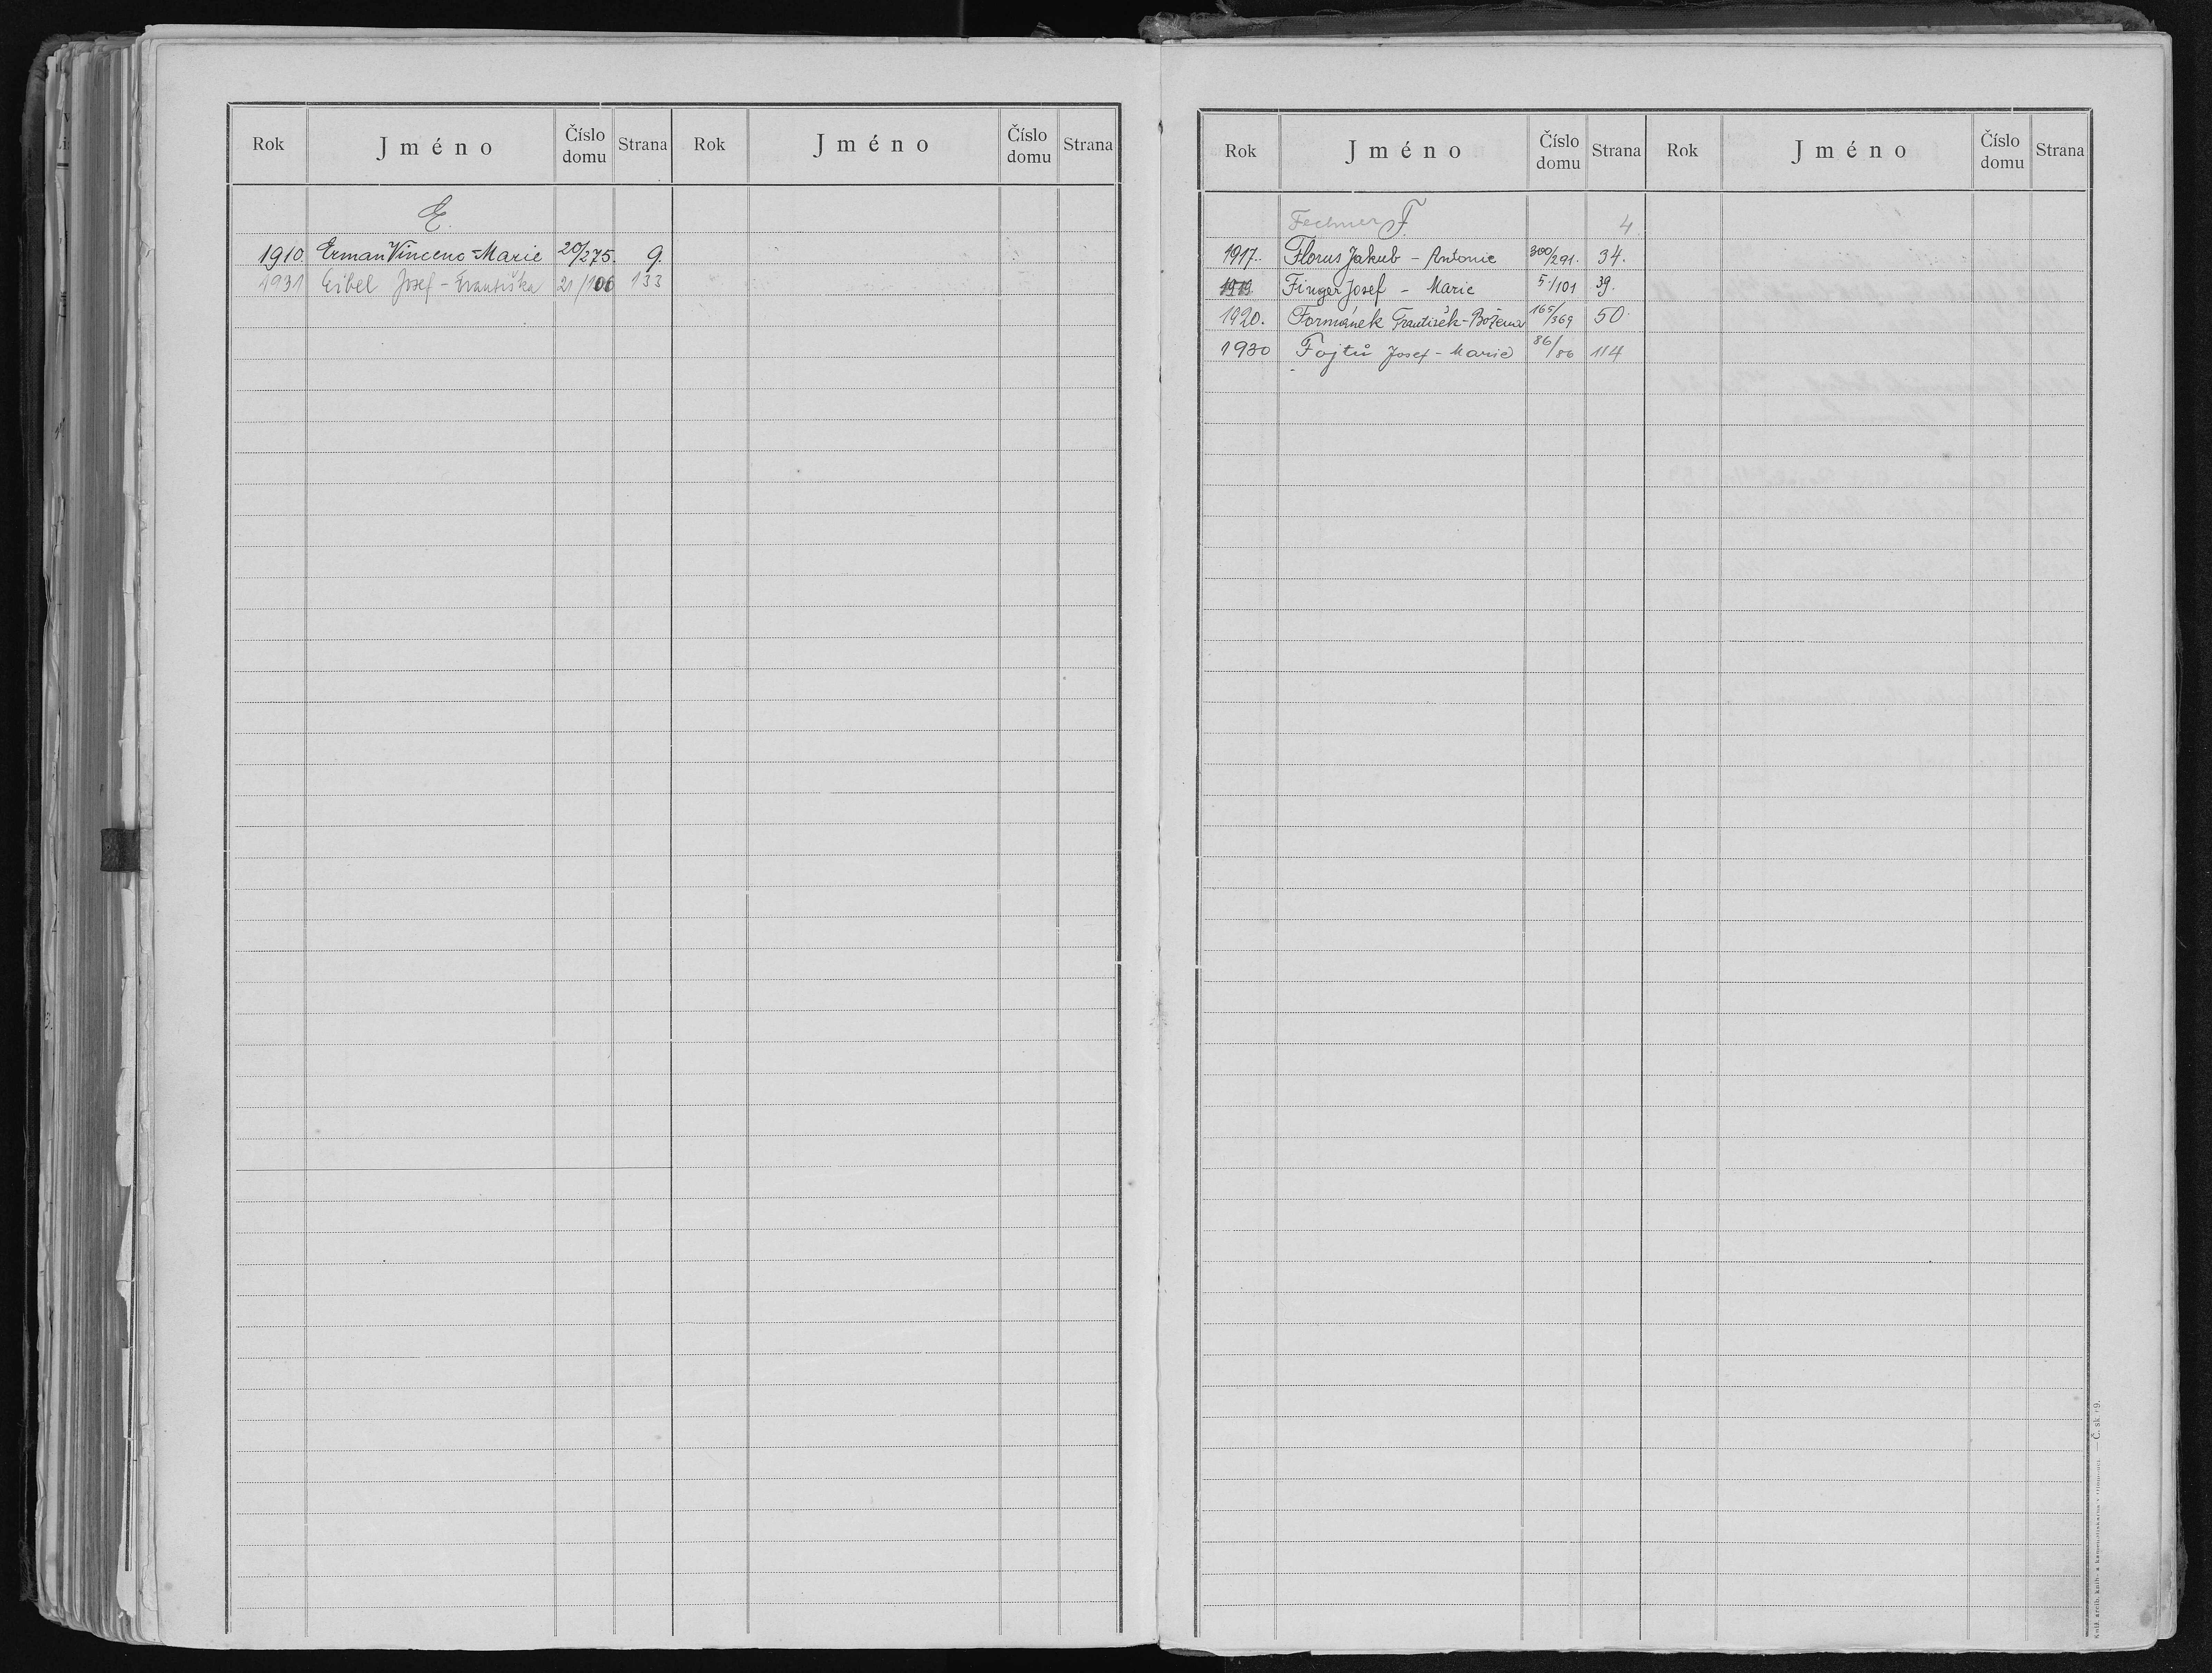 Rok Jméno Číslo domu Strana Rok Jméno Číslo domu Strana
E.
1910 Erman Vincenc = Marie 20/275. 9.
1931 Eibel Josef - Františka 21/106 133
Rok Jméno Číslo domu Strana Rok Jméno Číslo domu Strana
Fechner F. 4
1917. Florus Jakub - Antonie 300/291. 34.
1919 Finger Josef - Marie 5/101 39.
1920. Formánek František - Božena 165/369 50.
1930 Fojtů Josef - Marie 86/86 114